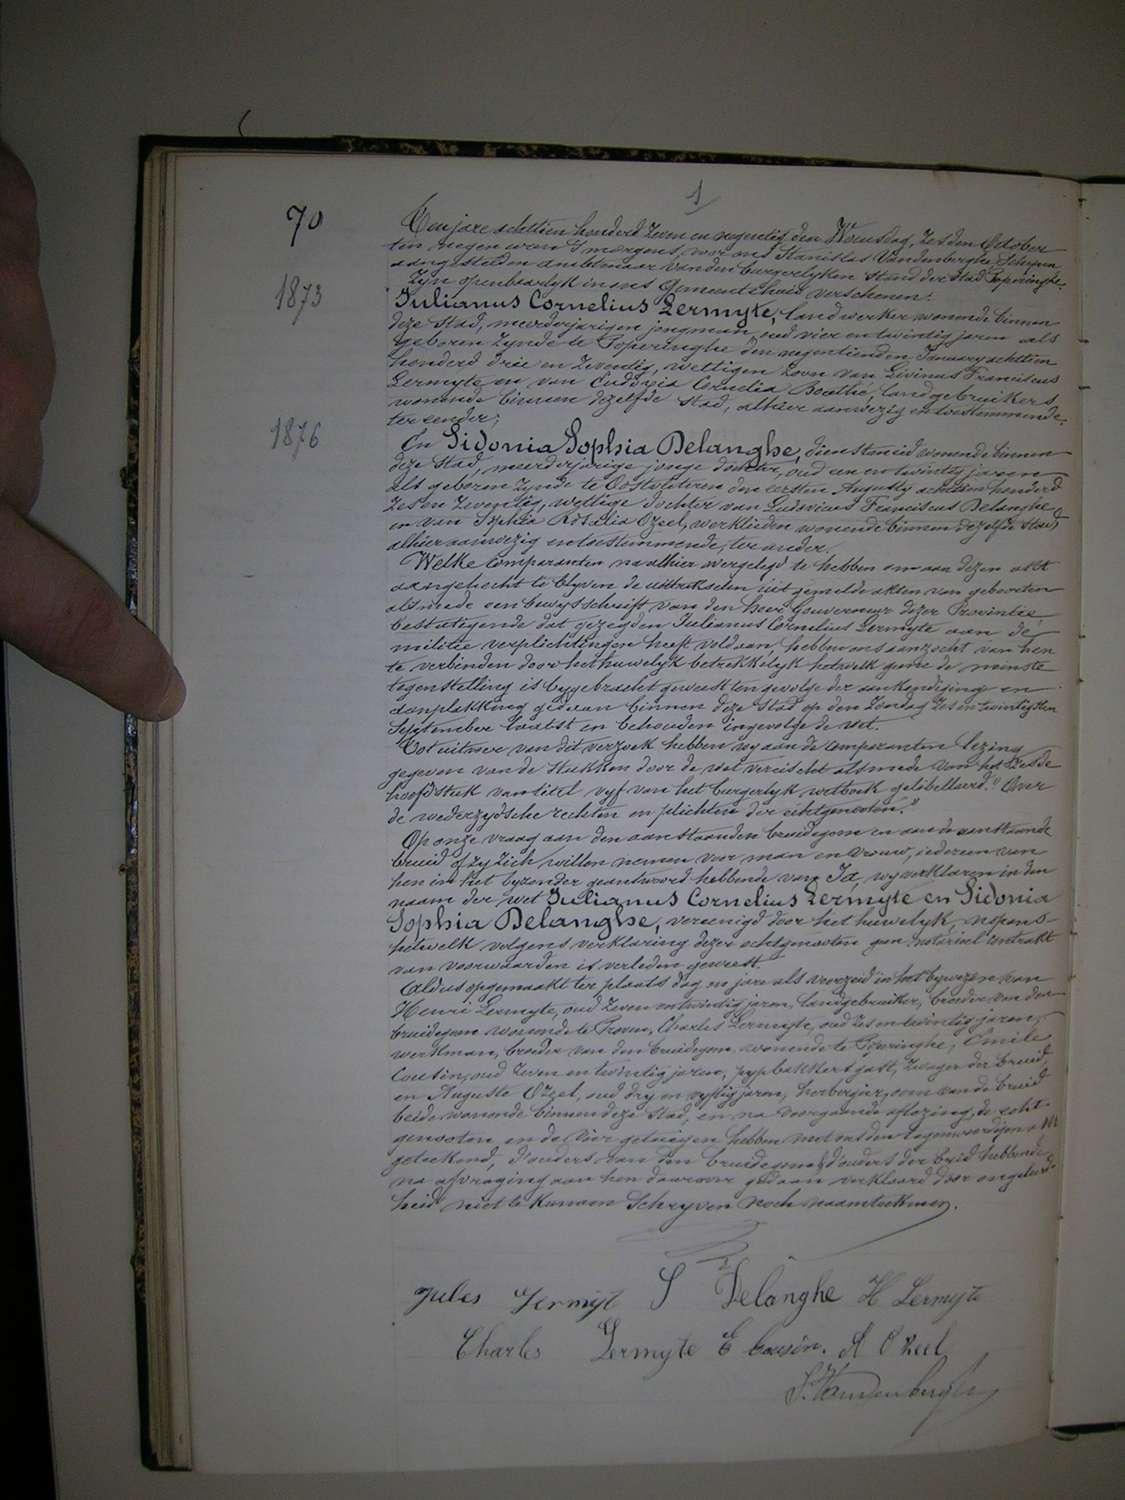 1
70
Ten jare achttien honderd zeven en negentig den Woensdag, zesden October
ten negen uren 's morgens, voor ons Stanislas Vandenberghe, Schepen
aangestelden ambtenaar van den burgerlyken stand der stad Poperinghe,
Zyn openbaarlyk in ons Gemeentehuis verschenen:
1873
Julianus Cornelius Lermyte, landwerker wonende binnen
deze Stad, meerderjarigen jongman, oud vier en twintig jaren als
geboren zynde te Poperinghe den negentienden January achttien
honderd drie en zeventig, wettigen zoon van Livinus Franciscus
Lermyte en van Eudoxia Cornelia Boethé, landgebruikers
wonende binnen dezelfde stad, alhier aanwezig en toestemmende,
ter eender;
1876
En Sidonia Sophia Delanghe, dienstmeid wonende binnen
deze Stad, meerderjarige jonge dochter, oud een en twintig jaren
als geboren zynde te Oostvleteren den eersten Augusty achttien honderd
zes en zeventig, wettige dochter van Ludovicus Franciscus Delanghe
en van Sophia Rosalia Ozeel, werklieden wonende binnen dezelfde stad
alhier aanwezig en toestemmende, ter ander.
Welke comparanten na alhier overgelegd te hebben om aan dezen akt
aangehecht te blyven de uittreksels uit gemelde akten van geboorten
alsmede een bewysschrift van den heer Gouverneur dezer Provintie
bestatigende dat gezegden Julianus Cornelius Lermyte aan de
militie verplichtingen heeft voldaan, hebben ons aanzocht van hen
te verbinden door het huwelyk betrekkelyk hetwelk geene de minste
tegenstelling is bygebracht geweest ten gevolge der aankondiging en
aanplakking gedaan binnen deze Stad op den Zondag zes en twintigsten
September laatst en behouden ingevolge de wet.
Tot uitvoer van dit verzoek hebben wy aan de comparanten lezing
gegeven van de stukken door de wet vereischt alsmede van het zesde
hoofdstuk van titel vyf van het burgerlyk wetboek gelibelleerd: "Over
de wederzydsche rechten en plichten der echtgenooten."
Op onze vraag aan den aanstaanden bruidegom en aan de aanstaande
bruid of zy zich willen nemen voor man en vrouw, iedereen van
hen in het byzonder geantwoord hebbende van Ja, wy verklaren in den
naam der wet Julianus Cornelius Lermyte en Sidonia
Sophia Delanghe, vereenigd door het huwelyk, nopens
hetwelk volgens verklaring dezer echtgenooten geen notarieel contrakt
van voorwaarden is verleden geweest.
Aldus opgemaakt ter plaats dag en jare als voorzeid in het bywezen van
Henri Lermyte, oud zeven en twintig jaren, landgebruiker, broeder van den
bruidegom wonende te Proven, Charles Lermyte, oud zes en twintig jaren,
werkman, broeder van den bruidegom, wonende te Poperinghe, Emile
Cousin, oud zeven en twintig jaren, pypbakkersgast, zwager der bruid,
en Auguste Ozeel, oud dry en vyftig jaren, herbergier, oom van de bruid
beide wonende binnen deze stad, en na voorgaande aflezing, de echt-
genooten en de vier getuigen hebben met ons den tegenwoordigen akt
geteekend, d'ouders van den bruidegom & d'ouders der bruid hebbende
na afvraging aan hen daarover gedaan verklaard door ongeleerd-
heid niet te kunnen schryven noch naamteekenen.
Jules Lermyt S Delanghe H Lermyte
Charles Lermyte E Cousin. A Ozeel
S. Vandenberghe